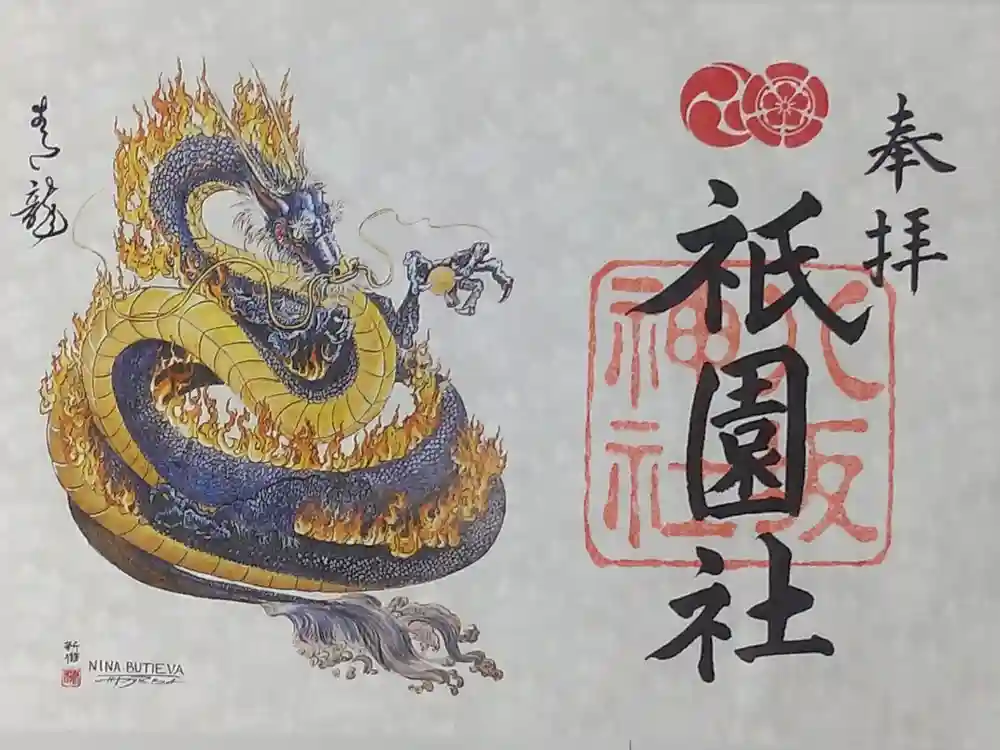 奉拝
祇園社
八坂神社
青龍
NINA BUTIEVA